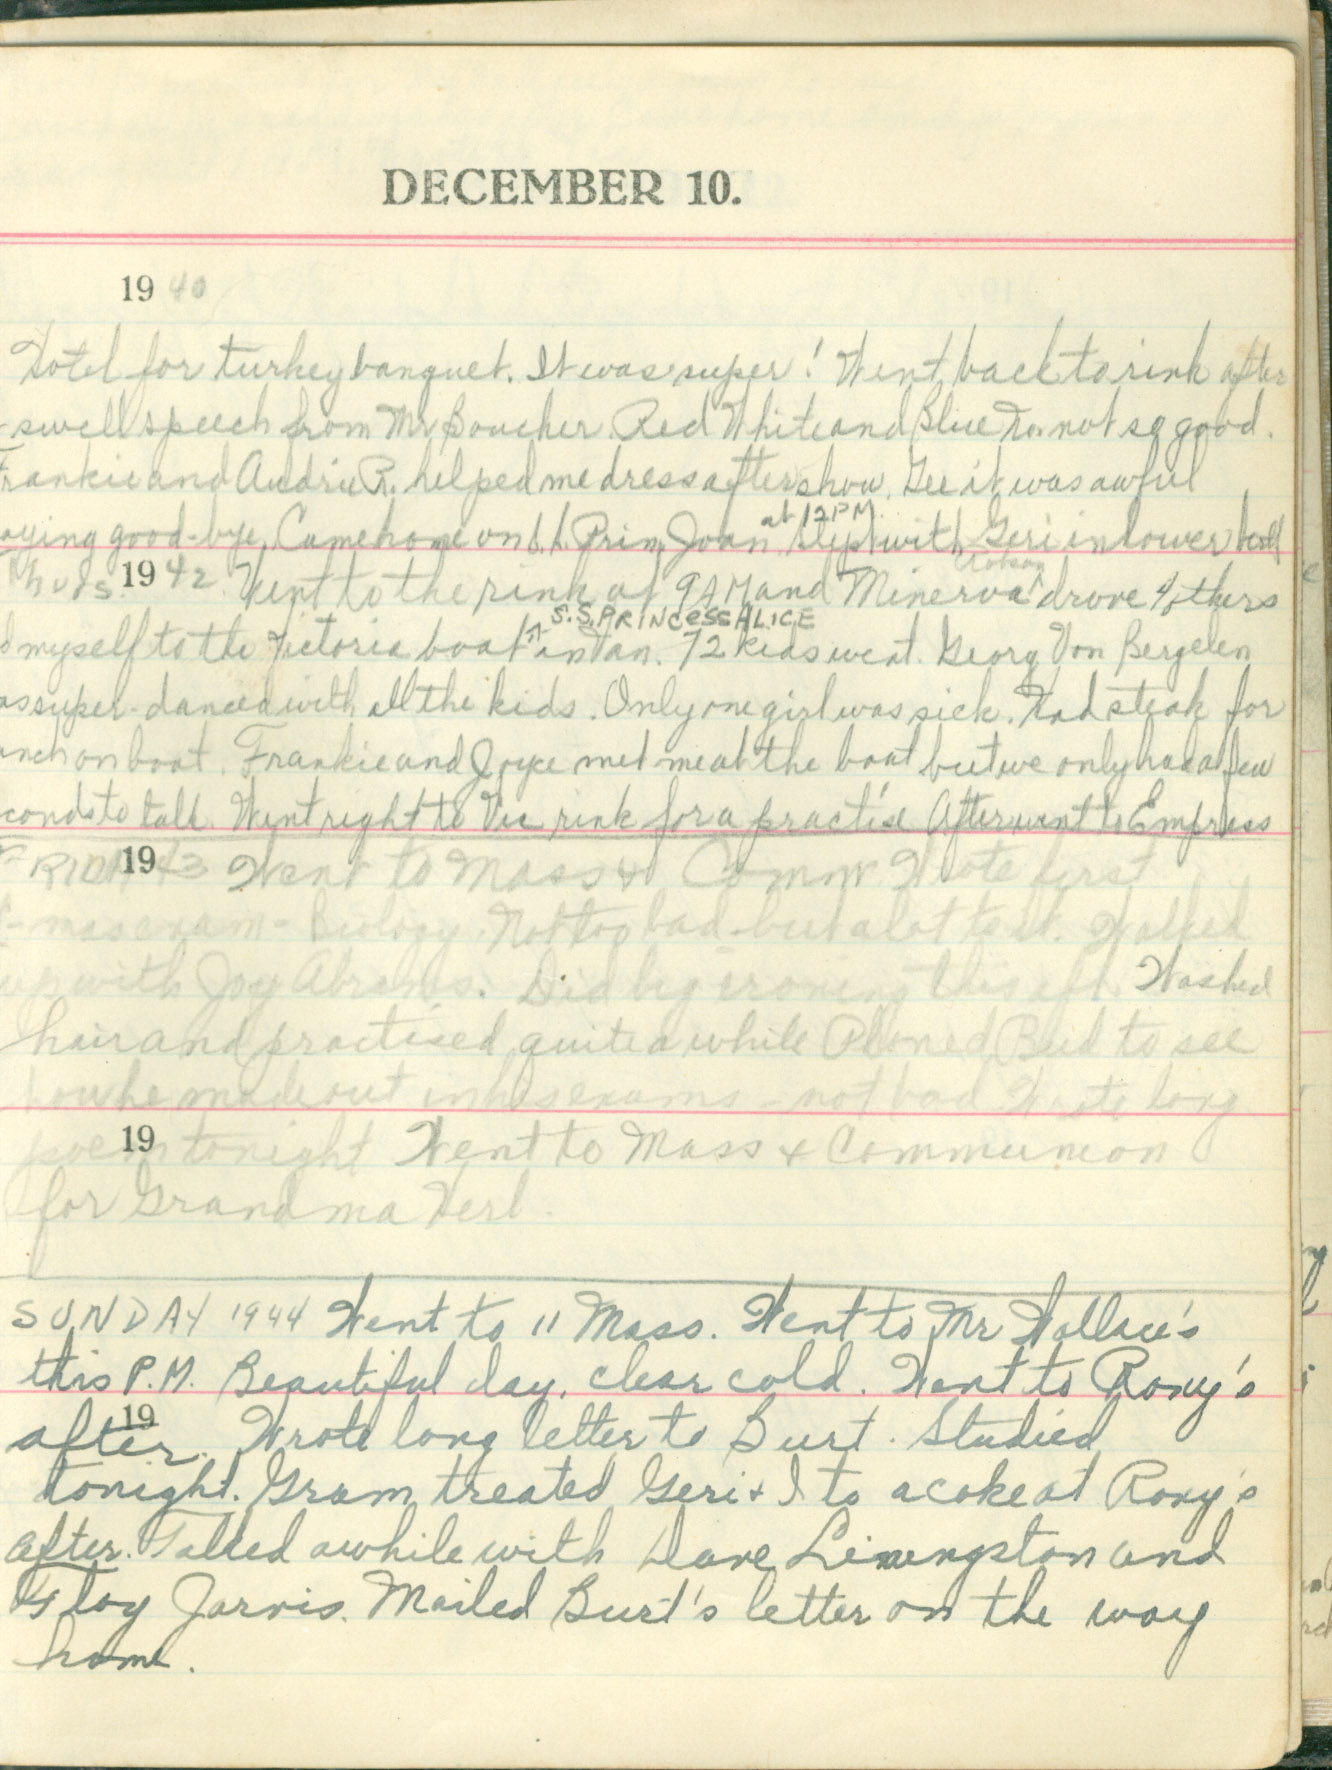 DECEMBER 10.
1940
Hotel for turkey banquet. It was super! Went back to rink after
swell speech from Mr Boucher. Red White and Blue No. not so good.
Frankie and Audrie R. helped me dress after show. Gee it was awful
aying good-bye. Came home on Prin. Joan at 12 PM. Slept with Geri in lower
Thurs. 1942. Went to the rink at 9 AM and Minerva drove 4 others
d myself to the Victoria boat S.S. PRINCESS ALICE in Van. 72 kids went. Georg Von Bergelen
as super-danced with all the kids. Only one girl was sick. Had steak for
unch on boat. Frankie and Joyce met me at the boat but we only had a few
conds to talk. Went right to Vic rink for a practise. After went to Empress
FRIDAY 1943 Went to Mass & Comm. Wrote first
X-mas exam - Biology. Not too bad - but a lot to it. Walked
up with Joy Abrams. Did big ironing this aft. Washed
hair and practised quite a while Phoned Bud to see
how he made out in his exams - not bad. Wrote long
19 poem tonight Went to Mass & Communion
for Grandma Herl.
SUNDAY 1944 Went to 11 Mass. Went to Mr Wallace's
this P.M. Beautiful day, clear cold. Went to Roxy's
19
after. Wrote long letter to Burt. Studied
tonight. Gram treated Geri & I to a coke at Roxy's
after. Talked awhile with Dave Livingston and
Floy Jarvis. Mailed Burt's letter on the way
home.